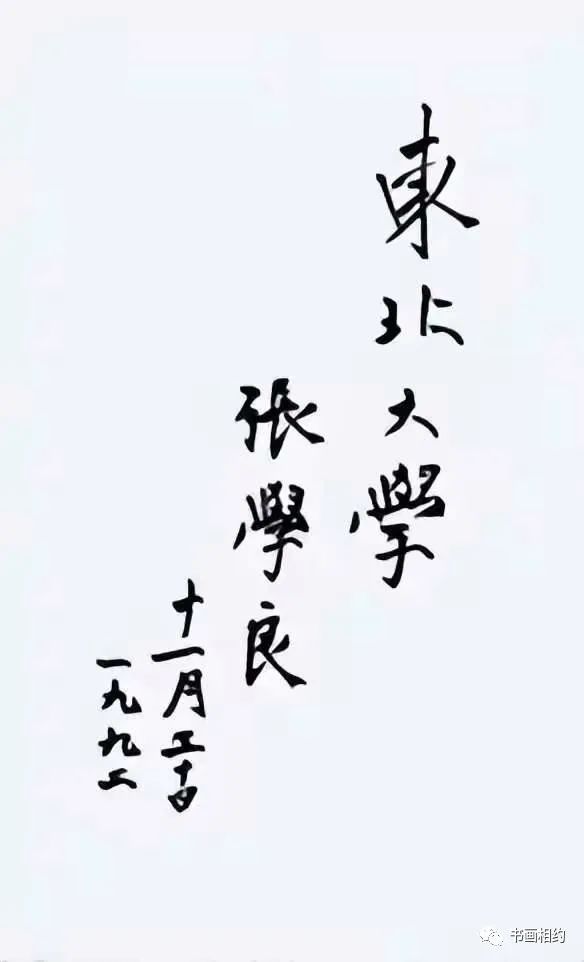 東北大學
張學良
十一月二十日
一九九二
书画相约